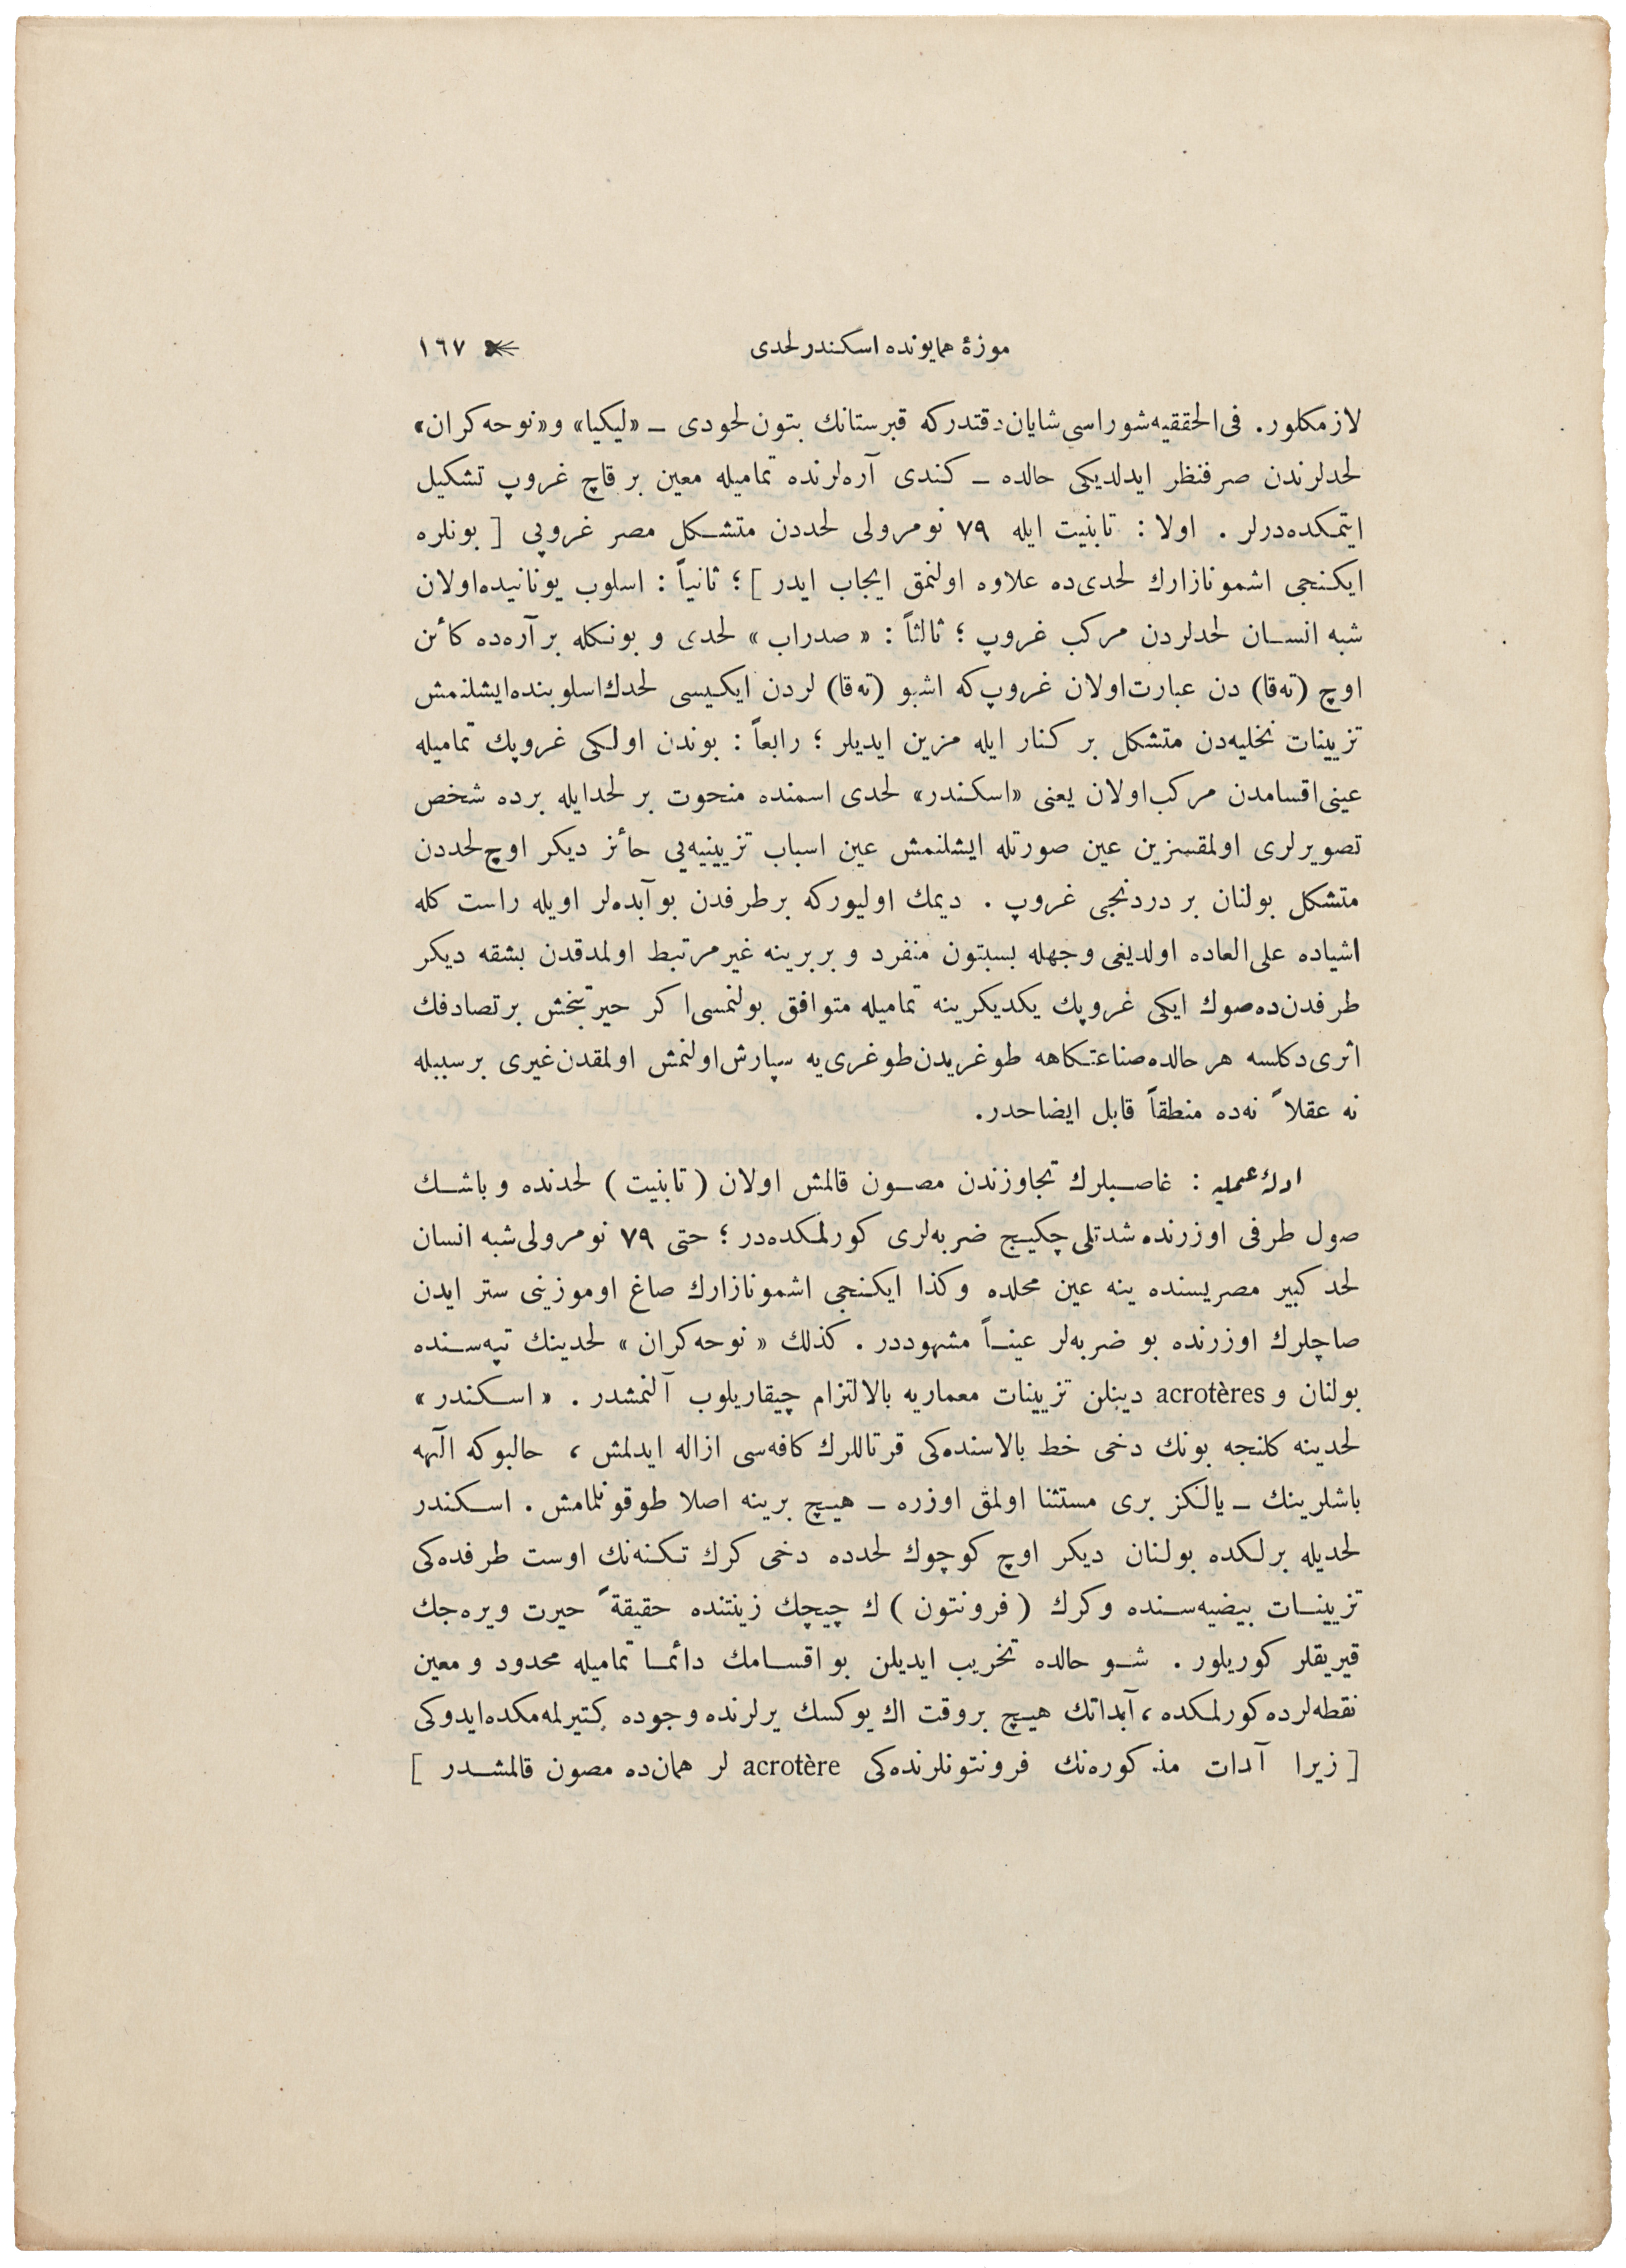 موزهٔ همایونده اسکندر لحدی ١٦٧
لازمکلور. فی‌الحقیقه شوراسی شایان دقتدرکه قبرستانك بتون لحودی ـ «لیکیا» و «نوحه‌کران»
لحدلرندن صرفنظر ایدلدیکی حالده ـ کندی آره‌لرنده تمامیله معین بر قاچ غروپ تشکیل
ایتمکده‌درلر . اولا : تابنیت ایله ٧٩ نومرولی لحددن متشکل مصر غروپی [ بونلره
ایکنجی اشمونازارك لحدی‌ده علاوه اولنمق ایجاب ایدر ] ؛ ثانیاً : اسلوب یونانیده‌اولان
شبه انسان لحدلردن مرکب غروپ ؛ ثالثاً : « صدراب » لحدی و بونکله برآره‌ده کائن
اوچ (ته‌قا) دن عبارت‌اولان غروپ‌که اشبو (ته‌قا) لردن ایکیسی لحدك‌اسلوبنده‌ایشلنمش
تزیینات نخلیه‌دن متشکل بر کنار ایله مزین ایدیلر ؛ رابعاً : بوندن اولکی غروپك تمامیله
عینی‌اقسامدن مرکب‌اولان یعنی «اسکندر» لحدی اسمنده منحوت بر لحدایله برده شخص
تصویرلری اولمقسزین عین صورتله ایشلنمش عین اسباب تزیینیه‌یی حائز دیکر اوچ‌لحددن
متشکل بولنان بر دردنجی غروپ . دیمك اولیورکه برطرفدن بوآبده‌لر اویله راست کله
اشیاده علی‌العاده اولدیغی وجهله بسبتون منفرد و بربرینه غیرمرتبط اولمدقدن بشقه دیکر
طرفدن‌ده‌صوك ایکی غروپك یکدیکرینه تمامیله متوافق بولنمسی‌اکر حیرتبخش برتصادفك
اثری‌دکلسه هرحالده‌صناعتکاهه طوغریدن‌طوغری‌یه سپارش‌اولنمش اولمقدن‌غیری برسببله
نه عقلاً نه‌ده منطقاً قابل ایضاحدر.
ادلهٔ عملیه : غاصبلرك تجاوزندن مصون قالمش اولان ( تابنیت ) لحدنده و باشك
صول طرفی اوزرنده شدتلی چکیج ضربه‌لری کورلمکده‌در ؛ حتی ٧٩ نومرولی‌شبه انسان
لحد کبیر مصریسنده ینه عین محلده وکذا ایکنجی اشمونازارك صاغ اوموزینی ستر ایدن
صاچلرك اوزرنده بو ضربه‌لر عیناً مشهوددر . کذلك « نوحه‌کران » لحدینك تپه‌سنده
بولنان و acrotères دینلن تزیینات معماریه بالالتزام چیقاریلوب آلنمشدر . « اسکندر »
لحدینه کلنجه بونك دخی خط بالاسنده‌کی قرتاللرك کافه‌سی ازاله ایدلمش ، حالبوکه آلهه
باشلرینك ـ یالکز بری مستثنا اولمق اوزره ـ هیچ برینه اصلا طوقونلمامش . اسکندر
لحدیله برلکده بولنان دیکر اوچ کوچوك لحدده دخی کرك تکنه‌نك اوست طرفده‌کی
تزیینات بیضیه‌سنده وکرك ( فرونتون ) ك چیچك زینتنده حقیقةً حیرت ویره‌جك
قیریقلر کوریلور . شو حالده تخریب ایدیلن بواقسامك دائما تمامیله محدود و معین
نقطه‌لرده‌کورلمکده ، آبداتك هیچ بروقت اك یوکسك یرلرنده وجوده کتیرلمه‌مکده‌ایدوکی
[ زیرا آدات مذکوره‌نك فرونتونلرنده‌کی acrotère لر همان‌ده مصون قالمشدر ]